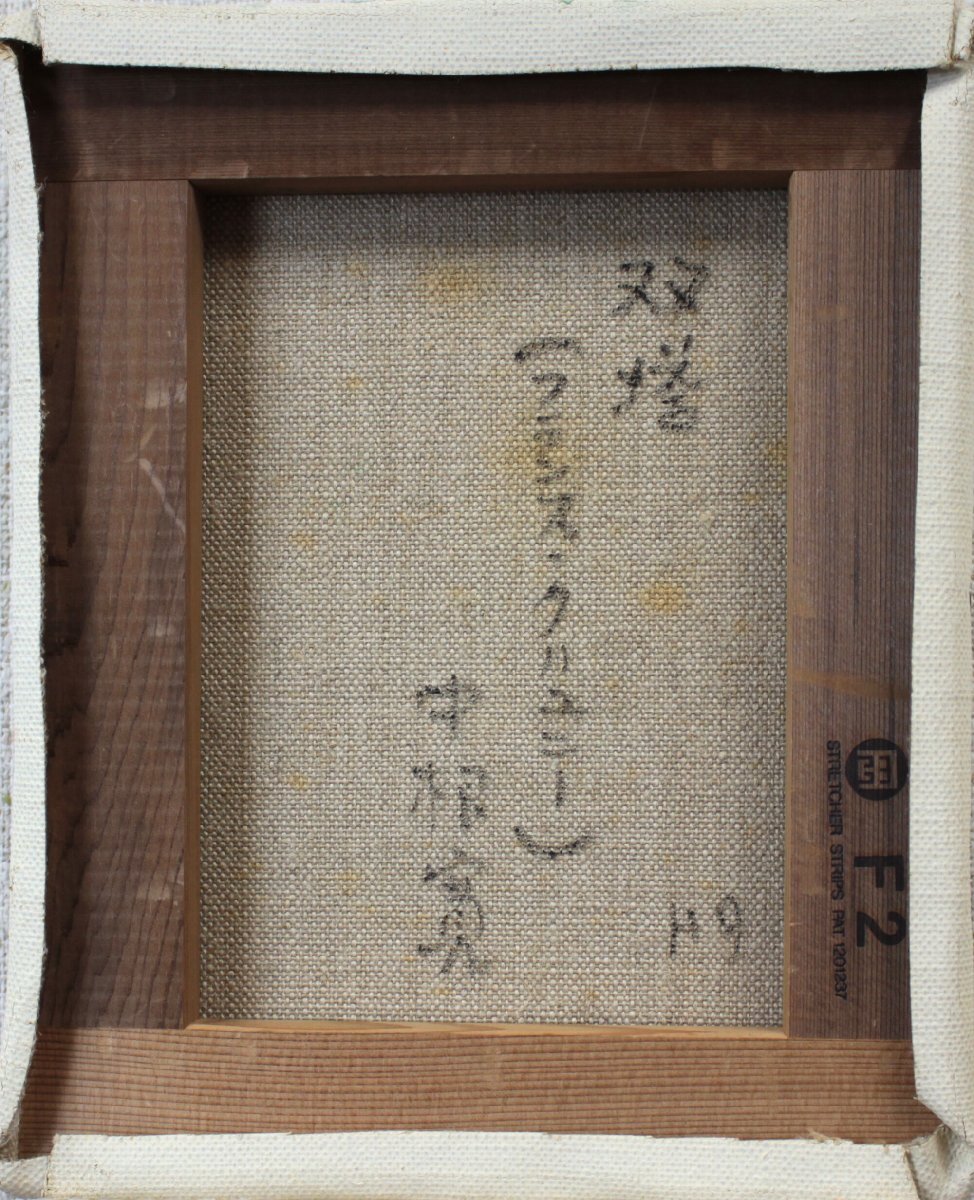 双塔
(フランス・クリュニー)
中根寛
F2
STRETCHER STRIPS PAT 1201237